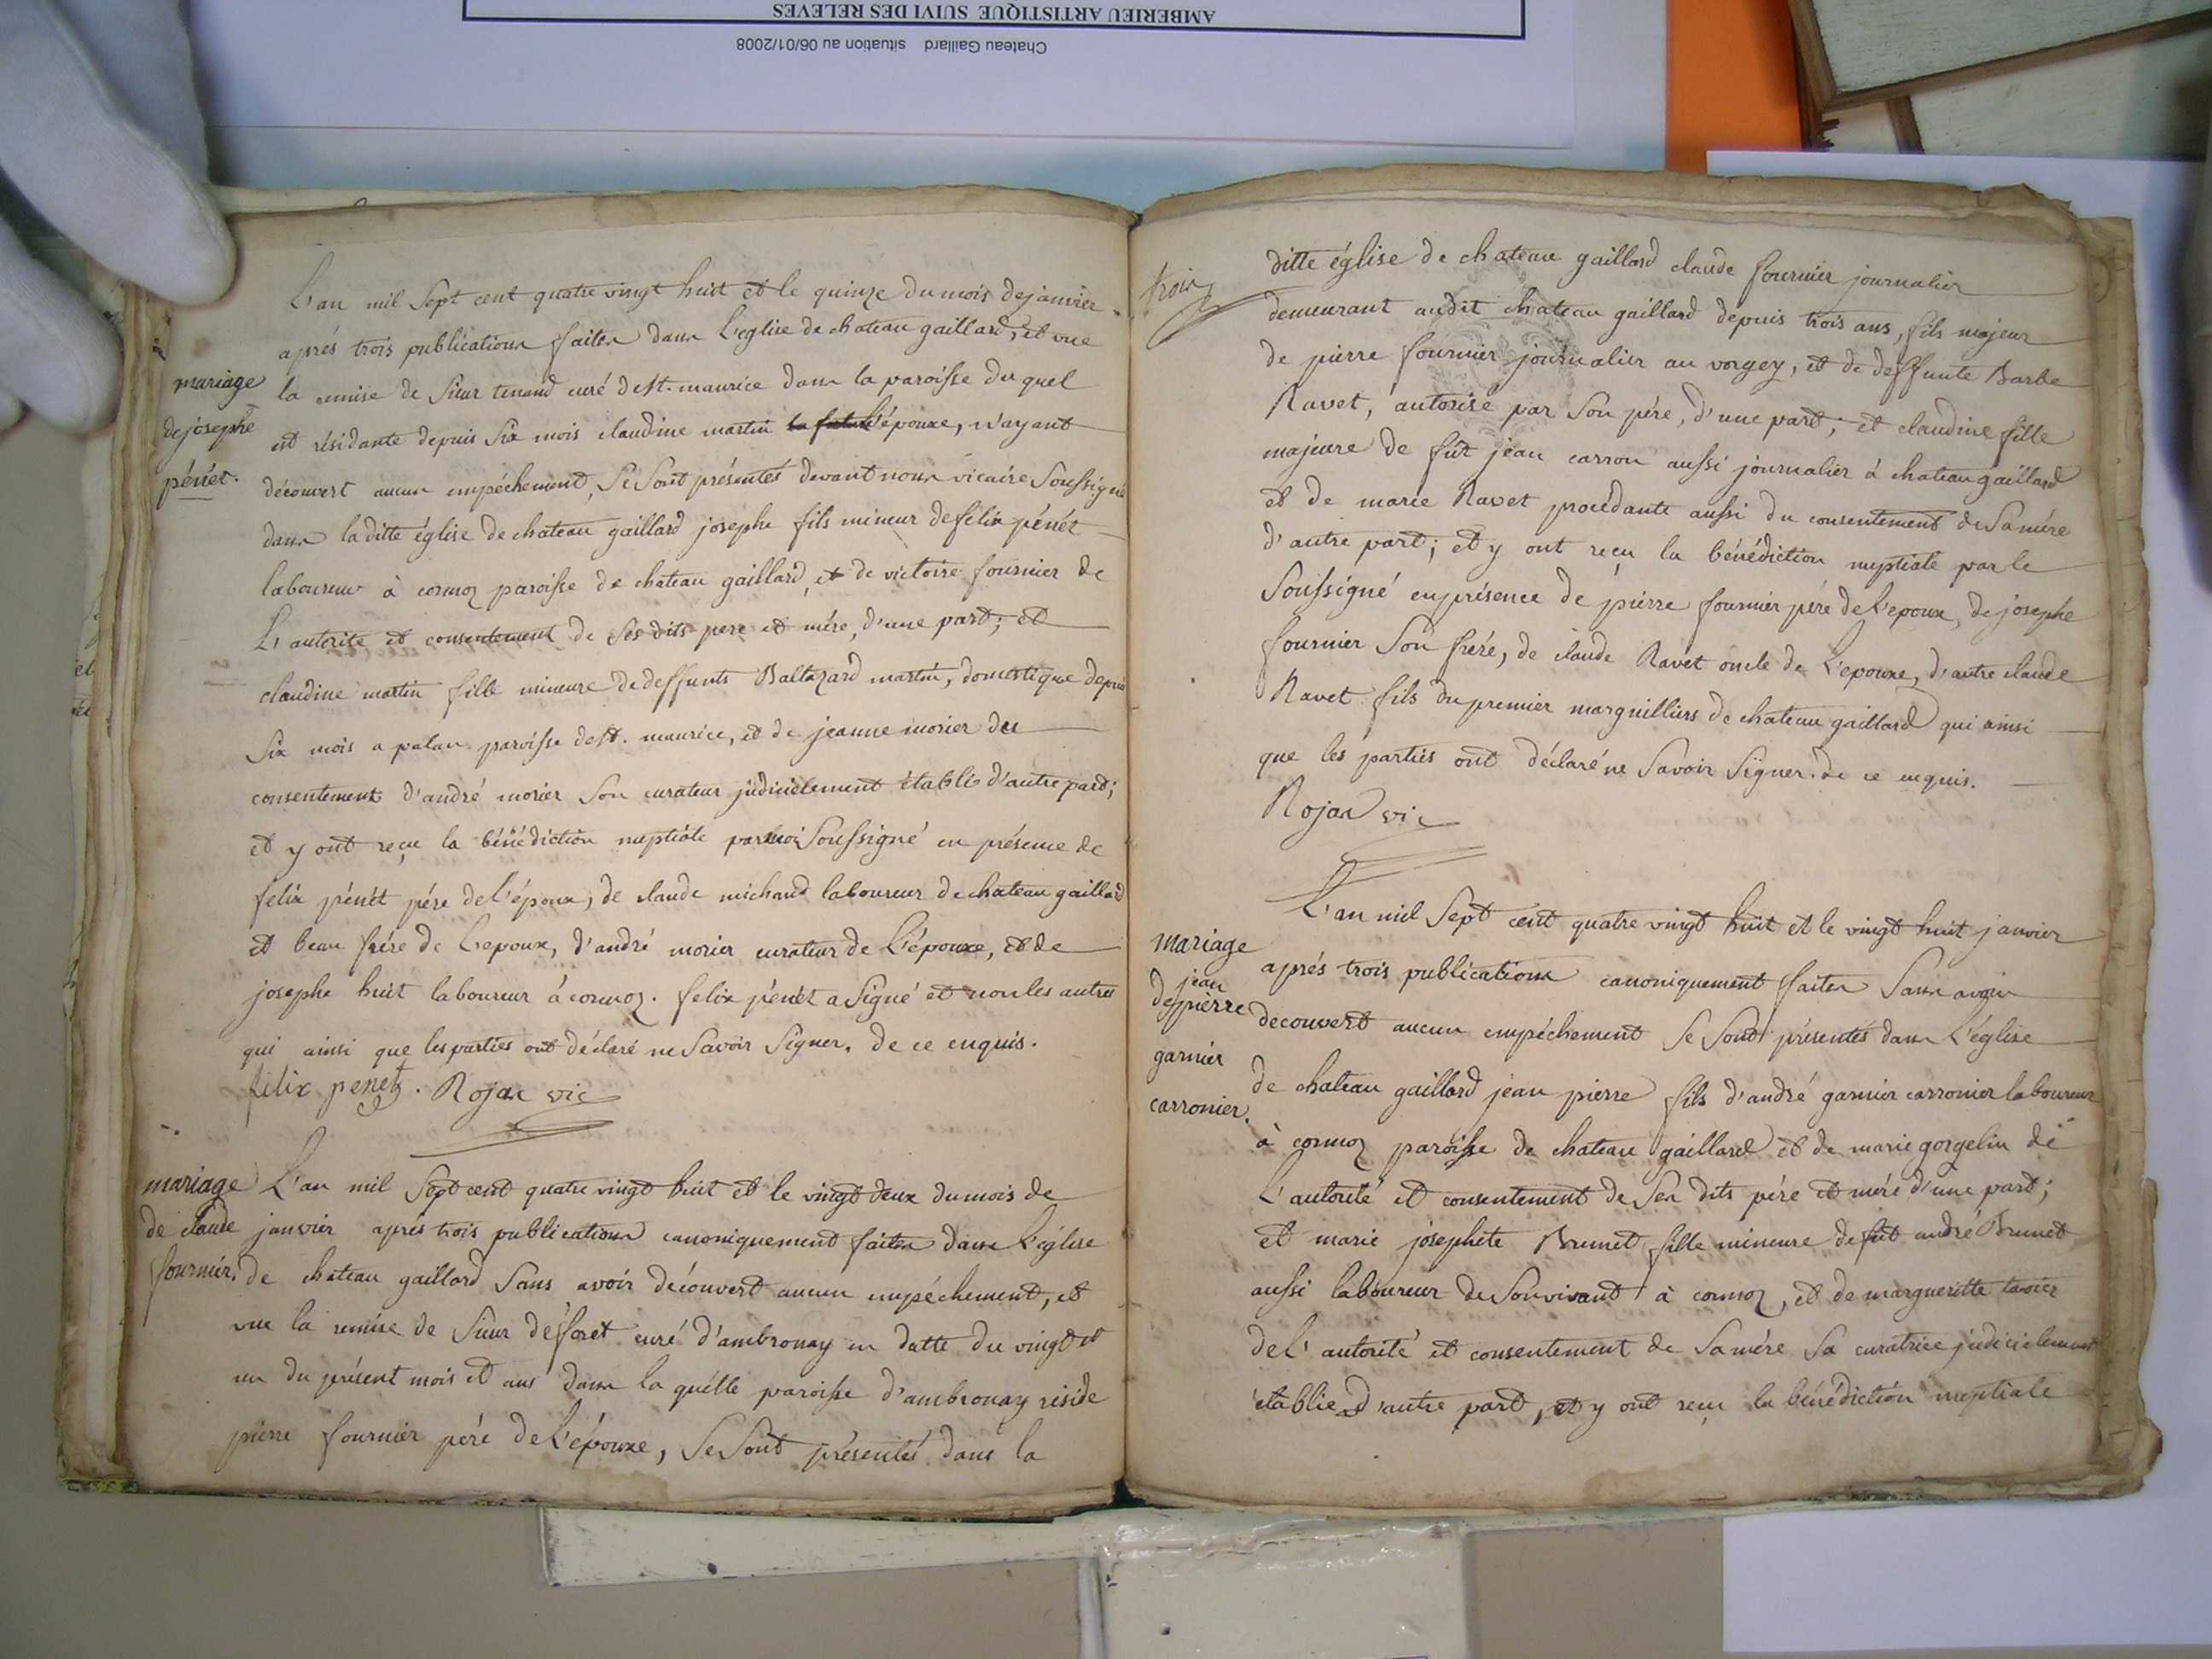 AMBERIEU ARTISTIQUE SUIVI DES RELEVES
Chateau Gaillard situation au 06/01/2008
L'an mil Sept cent quatre vingt huit et le quinze du mois de janvier
aprés trois publications faites dans L'eglise de chateau gaillard, et vue
mariage
de josephe
pénét.
la remise de Sieur tenand curé de st. maurice dans la paroisse du quel
est résidante depuis Six mois claudine martin l'épouse, n'ayant
découvert aucun empéchement, Se Sont présentés devant nous vicaire Soussigné
dans la ditte église de chateau gaillard josephe fils mineur de félix pénét
laboureur à cormoz paroisse de chateau gaillard, et de victoire fournier de
L'autorité et consentement de Ses dits pere et mére, d'une part; et
claudine martin fille mineure de deffunts Baltazard martin, domestique depuis
Six mois a palan paroisse de st. maurice, et de jeanne morier du
consentement d'andré morier Son curateur judiciélement établi d'autre part;
et y ont reçu la bénédiction nuptiale par moi Soussigné en présence de
felix pénét pére de l'époux, de claude michaud laboureur de chateau gaillard
et beau frére de L'epoux, d'andré morier curateur de L'épouse, et de
josephe huit laboureur à cormoz. felix pénét a Signé et non les autres
qui ainsi que les parties ont déclaré ne Savoir Signer, de ce enquis.
félix penet. Rojat vic
mariage
de claude
fournier.
L'an mil Sept cent quatre vingt huit et le vingt deux du mois de
janvier aprés trois publications canoniquement faites dans L'église
de chateau gaillard Sans avoir découvert aucun empéchement, et
vue la remise de Sieur défforet curé d'ambronay en datte du vingt et
un du présent mois et ans dans la quélle paroisse d'ambronay réside
pierre fournier péré de L'épouxe, Se Sont présentés dans la
trois
ditte église de chateau gaillard claude fournier journalier
demeurant audit chateau gaillard depuis trois ans, fils majeur
de pierre fournier journalier au vorgey, et de deffunte Barbe
Ravet, autorisé par Son pére, d'une part; et claudine fille
majeure de fût jean carron aussi journalier à chateau gaillard
et de marie Ravet procédante aussi du consentement de Sa mére
d'autre part; et y ont reçu la bénédiction nuptiale par le
Soussigné en présence de pierre fournier pére de L'epoux, de josephe
fournier Son fréré, de claude Ravet oncle de L'epouse, d'autre claude
Ravet fils du premier marguilliers de chateau gaillard qui ainsi
que les parties ont déclaré ne Savoir Signer. de ce enquis.
Rojat vic
mariage
de jean
pierre
garnier
carronier.
L'an mil Sept cent quatre vingt huit et le vingt huit janvier
aprés trois publications canoniquement faites Sans avoir
decouvert aucun empéchement Se Sont présentés dans L'église
de chateau gaillard jean pierre fils d'andré garnier carronier laboureur
à cormoz paroisse de chateau gaillard et de marie gorgelin de
L'autorité et consentement de Ses dits pére et mére d'une part;
et marie joséphete Brunet fille mineure de fût andré Brunet
aussi laboureur de Son vivant à cormoz, et de marguerite tavier
de l'autorité et consentement de Sa mére Sa curatrice judiciélement
établie d'autre part, et y ont reçu la bénédiction nuptiale